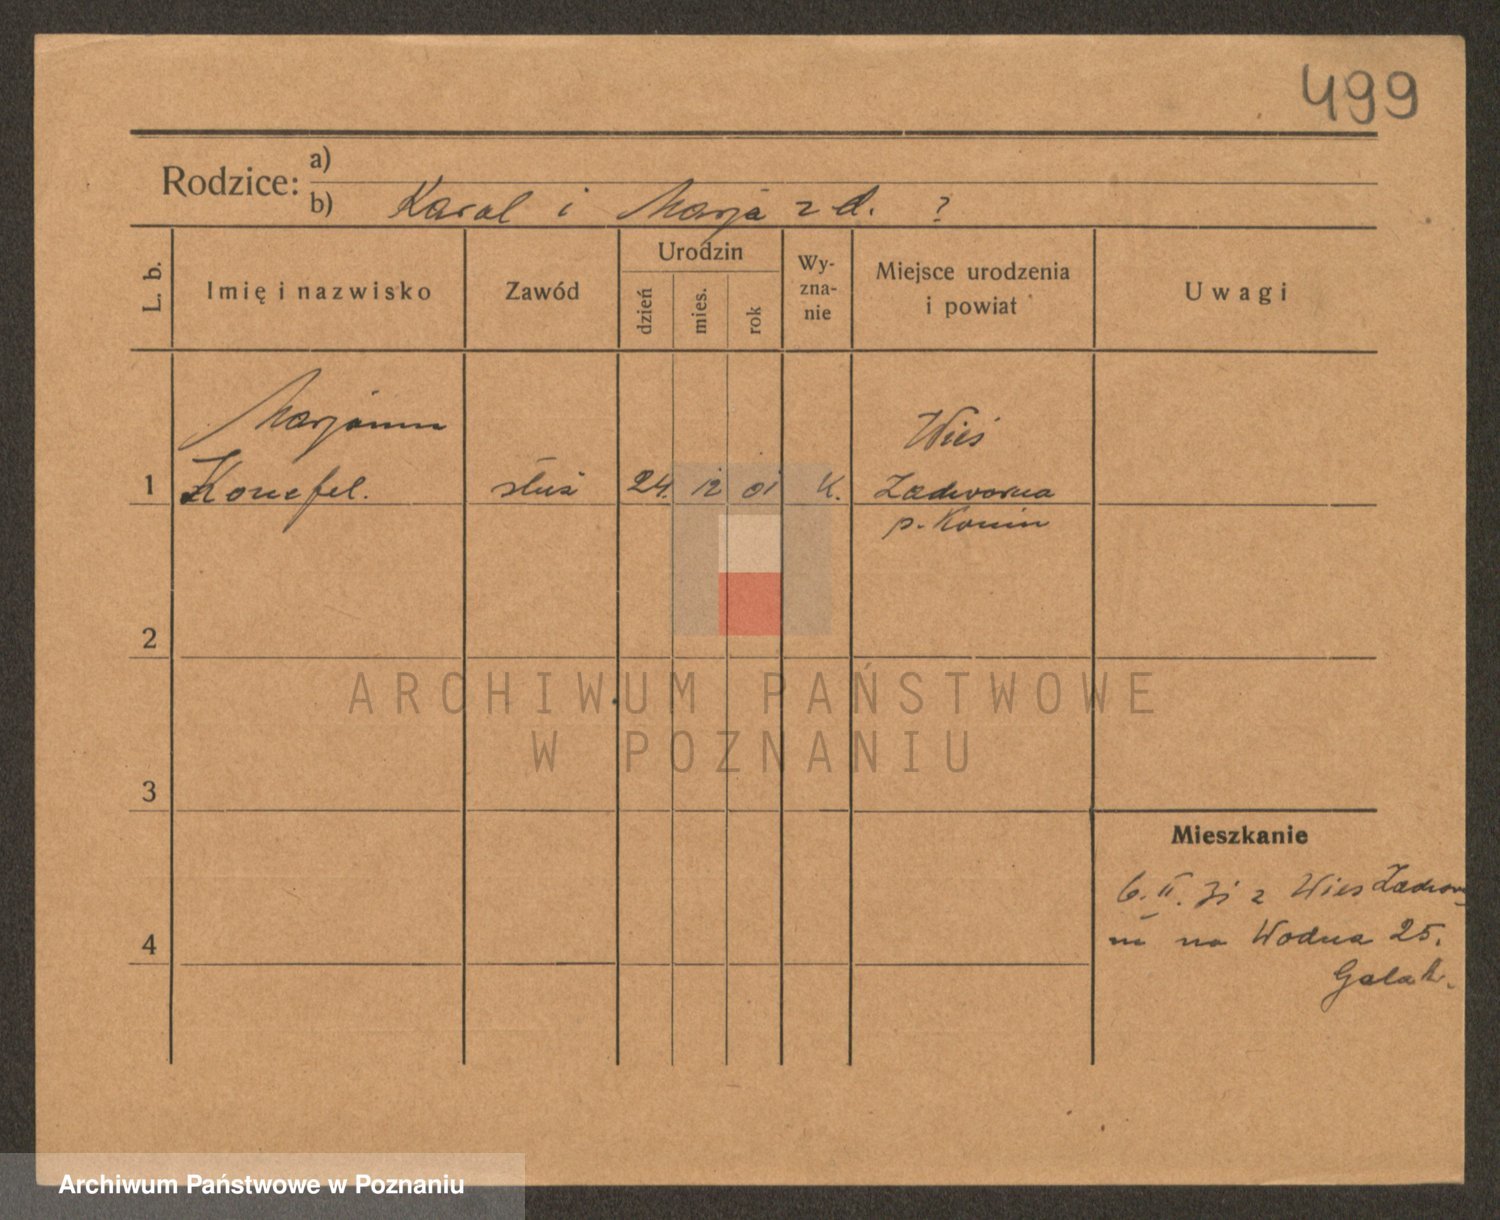 499
Rodzice:
a)
b) Karol i Marja z d. ?
L. b.
Imię i nazwisko
Zawód
Urodzin
dzień
mies.
rok
Wy-
zna-
nie
Miejsce urodzenia
i powiat
Uwagi
Marjanna
1 Konefel. służ 24. 12 01 K.
Wieś
Zadworna
p. Konin
2
ARCHIWUM PAŃSTWOWE
W POZNANIU
3
4
Mieszkanie
6. II. 31 z Wieś Zadwor
na Wodna 25.
Archiwum Państwowe w Poznaniu